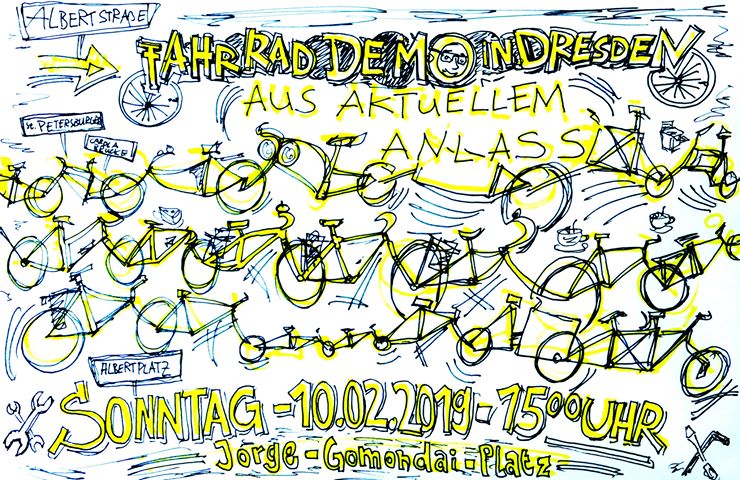 ALBERTSTRAßE
FAHRRAD DEMO IN DRESDEN
AUS AKTUELLEM
ANLASS
St. PETERSBURGER
CAROLA
BRÜCKE
ALBERTPLATZ
SONNTAG - 10.02.2019 - 15⁰⁰ UHR
Jorge - Gomondai - Platz